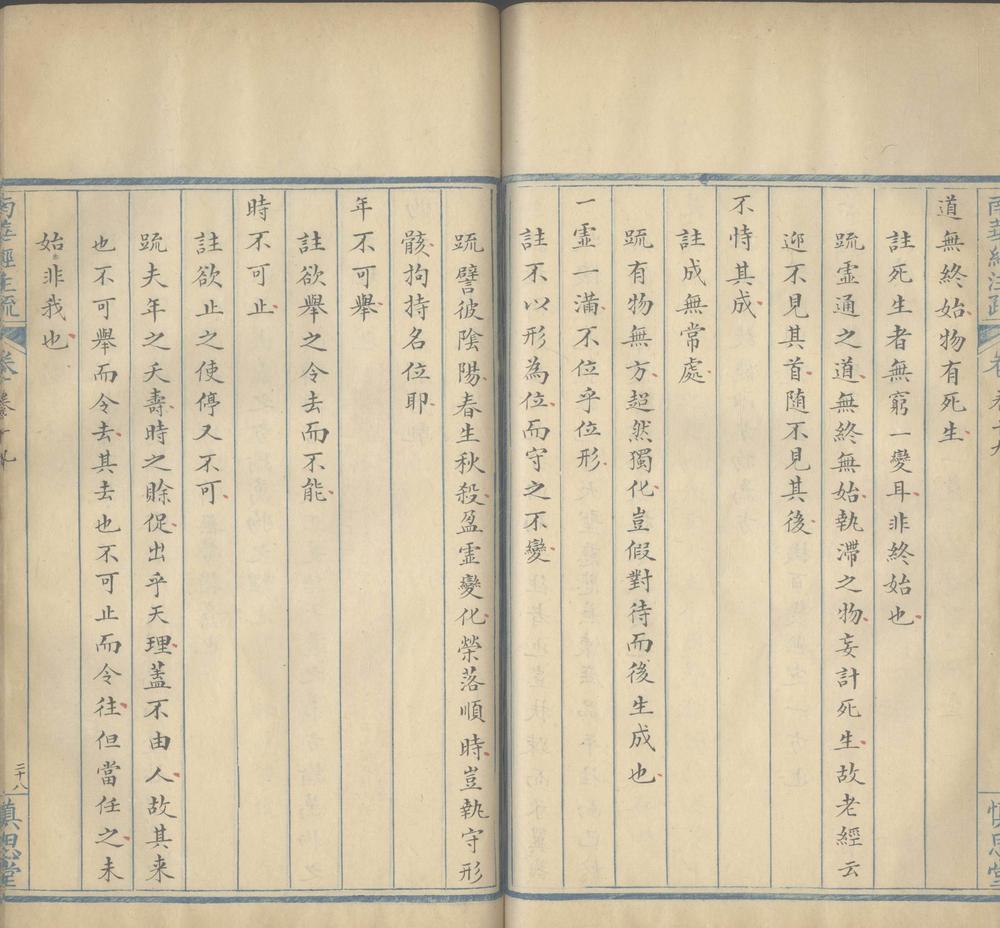 南華經注疏
慎思堂
道無終始物有死生
註死生者無窮一變耳非終始也
䟽霊通之道無終無始執滯之物妄計死生故老經云
迎不見其首随不見其後
不恃其成
註成無常處
䟽有物無方超然獨化豈假對待而後生成也
一霊一滿不位乎位形
註不以形為位而守之不變
䟽譬彼陰陽春生秋殺盈霊變化榮落順時豈執守形
骸拘持名位耶
年不可舉
註欲舉之令去而不能
時不可止
註欲止之使停又不可
䟽夫年之夭壽時之賒促出乎天理蓋不由人故其来
也不可舉而令去其去也不可止而令往但當任之未
始非我也
南華經注疏
卷
二十八
慎思堂